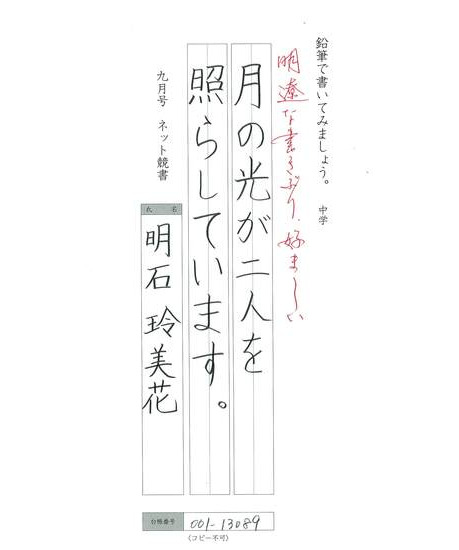 鉛筆で書いてみましょう。 中学
明遼な書きぶり、好ましい
月の光が二人を
照らしています。
九月号 ネット競書
氏 名
明石 玲美花
台帳番号 001-13089
(コピー不可)